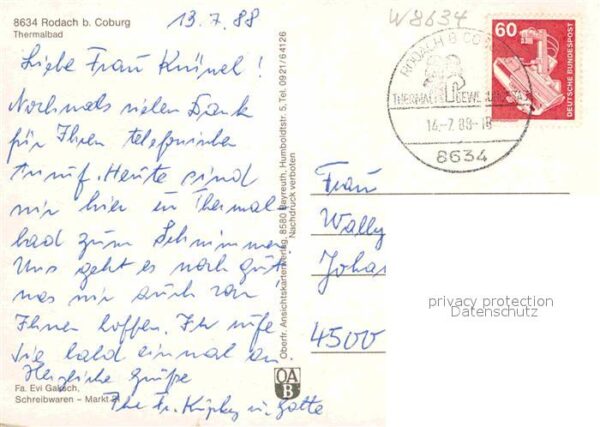 8634 Rodach b. Coburg
Thermalbad
13.7.88
W8634
60
DEUTSCHE BUNDESPOST
RODACH B CO
THERMAL BEWE
14.-7.88-18
8634
Liebe Frau Knüpel!
Nochmals vielen Dank
für Ihren telefonischen
Anruf. Heute sind
wir hier im Thermal
bad zum Schwimmen
Uns geht es noch gut
was wir auch von
Ihnen hoffen. Ich rufe
Sie bald einmal an
Herzliche Grüße
Ihre Fr. u. Gatte
Fa. Evi Gaksch,
Schreibwaren – Markt
Oberfr. Ansichtskartenverlag, 8580 Bayreuth, Humboldtstr. 5, Tel. 0921/64126
Nachdruck verboten
OA
B
Frau
Wally
Joha
4500
privacy protection
Datenschutz